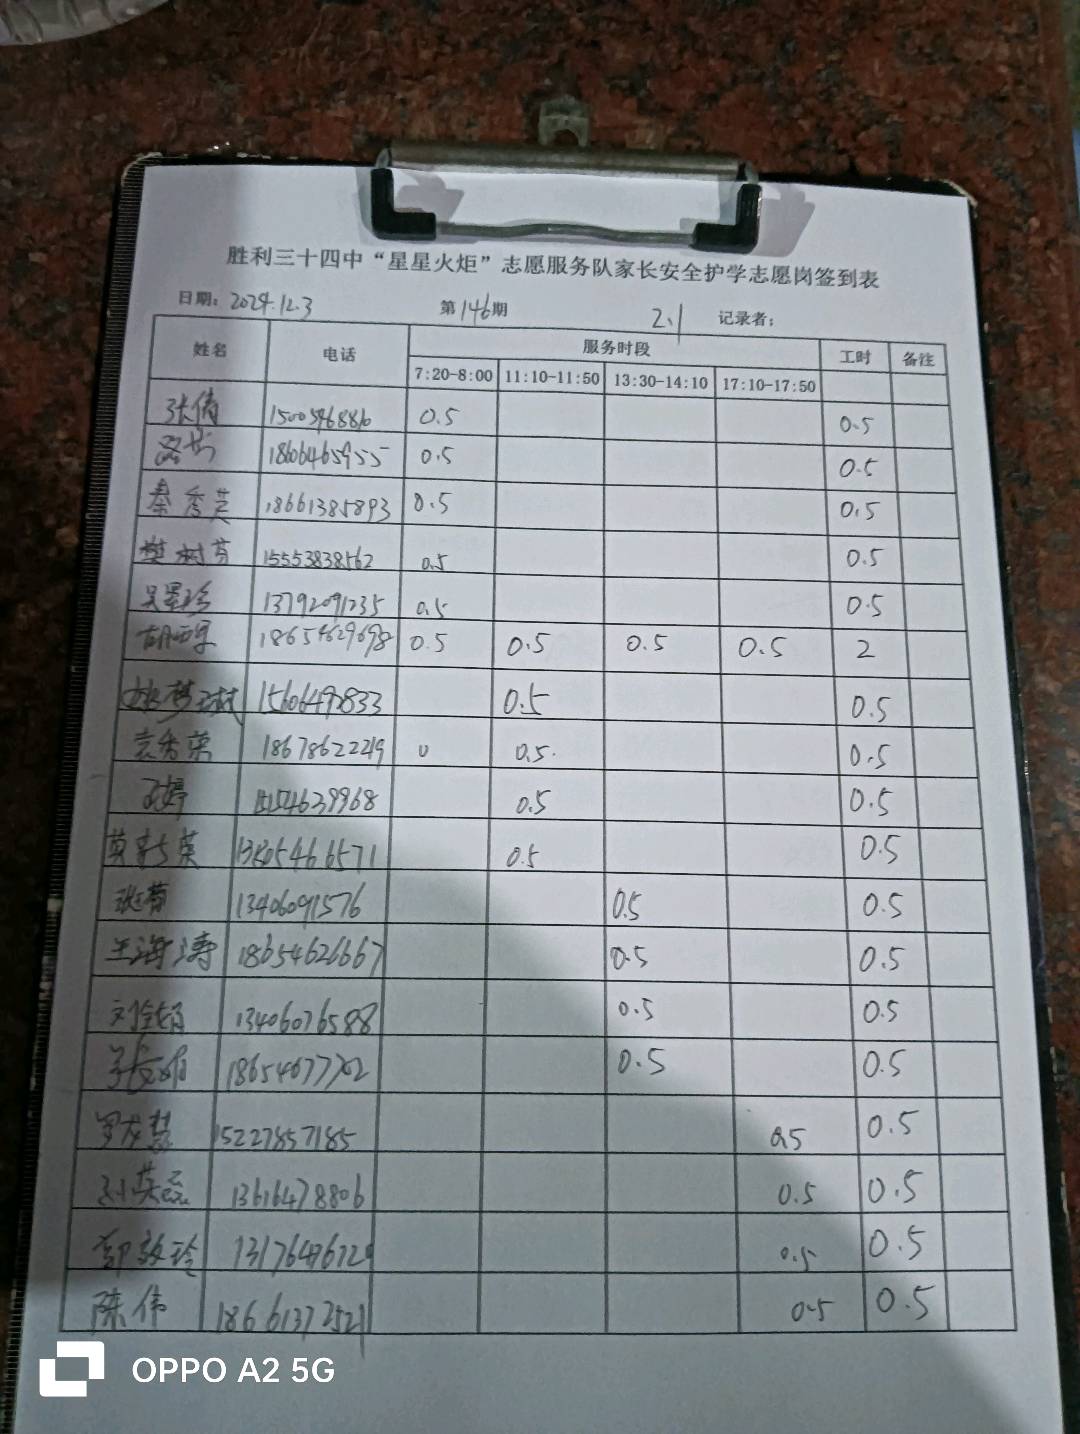 胜利三十四中“星星火炬”志愿服务队家长安全护学志愿岗签到表
日期：2024.12.3 第146期 2.1 记录者：
姓名 电话 服务时段 工时 备注
7:20-8:00 11:10-11:50 13:30-14:10 17:10-17:50
张倩 0.5 0.5
18606465955 0.5 0.5
秦秀英 18661385893 0.5 0.5
樊树芬 15553838562 0.5 0.5
吴星珍 13792091235 0.5 0.5
18654629698 0.5 0.5 0.5 0.5 2
15606492833 0.5 0.5
袁秀荣 18678622219 0 0.5. 0.5
孟婷 15154639968 0.5 0.5
13505466571 0.5 0.5
张菊 13406091576 0.5 0.5
王海涛 18654626667 0.5 0.5
刘金娟 13406076588 0.5 0.5
0.5 0.5
罗龙慧 15227857185 0.5 0.5
孙英磊 13616478806 0.5 0.5
郭敬玲 0.5 0.5
陈伟 18661372521 0.5 0.5
OPPO A2 5G